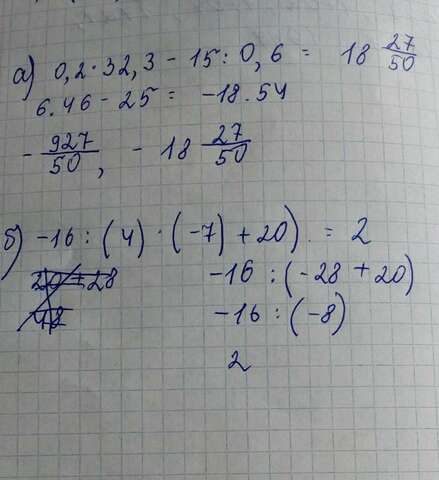 а) 0,2·32,3 - 15 : 0,6 = 18 27/50
6.46 - 25 = -18.54
- 927/50, - 18 27/50
б) -16 : (4) · (-7) + 20) = 2
-16 : (-28 + 20)
-16 : (-8)
2